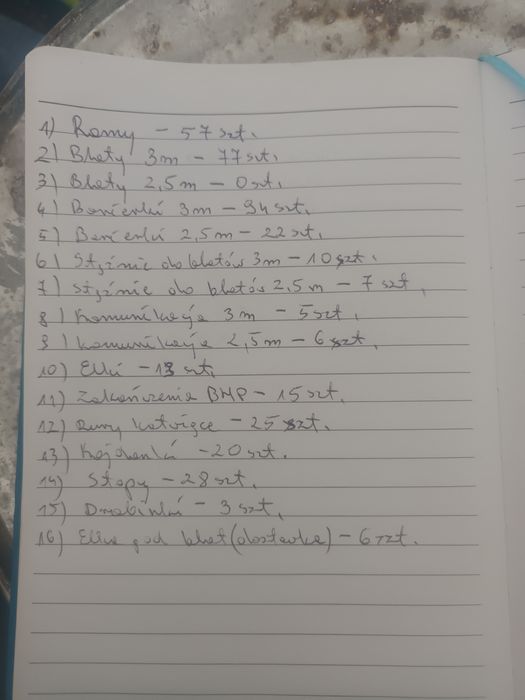 1) Ramy - 57 szt.
2) Blaty 3m - 77 szt.
3) Blaty 2,5m - 0 szt.
4) Barierki 3m - 94 szt.
5) Barierki 2,5m - 22 szt.
6) Stężnie do blatów 3m - 10 szt.
7) stężnie do blatów 2,5m - 7 szt.
8) Komunikacja 3m - 5 szt.
9) komunikacja 2,5m - 6 szt.
10) Elki - 13 szt.
11) Zakończenia BHP - 15 szt.
12) Rury kotwiące - 25 szt.
13) Kajdanki - 20 szt.
14) Stopy - 28 szt.
15) Drabinki - 3 szt.
16) Elka pod blat (dostawka) - 6 szt.